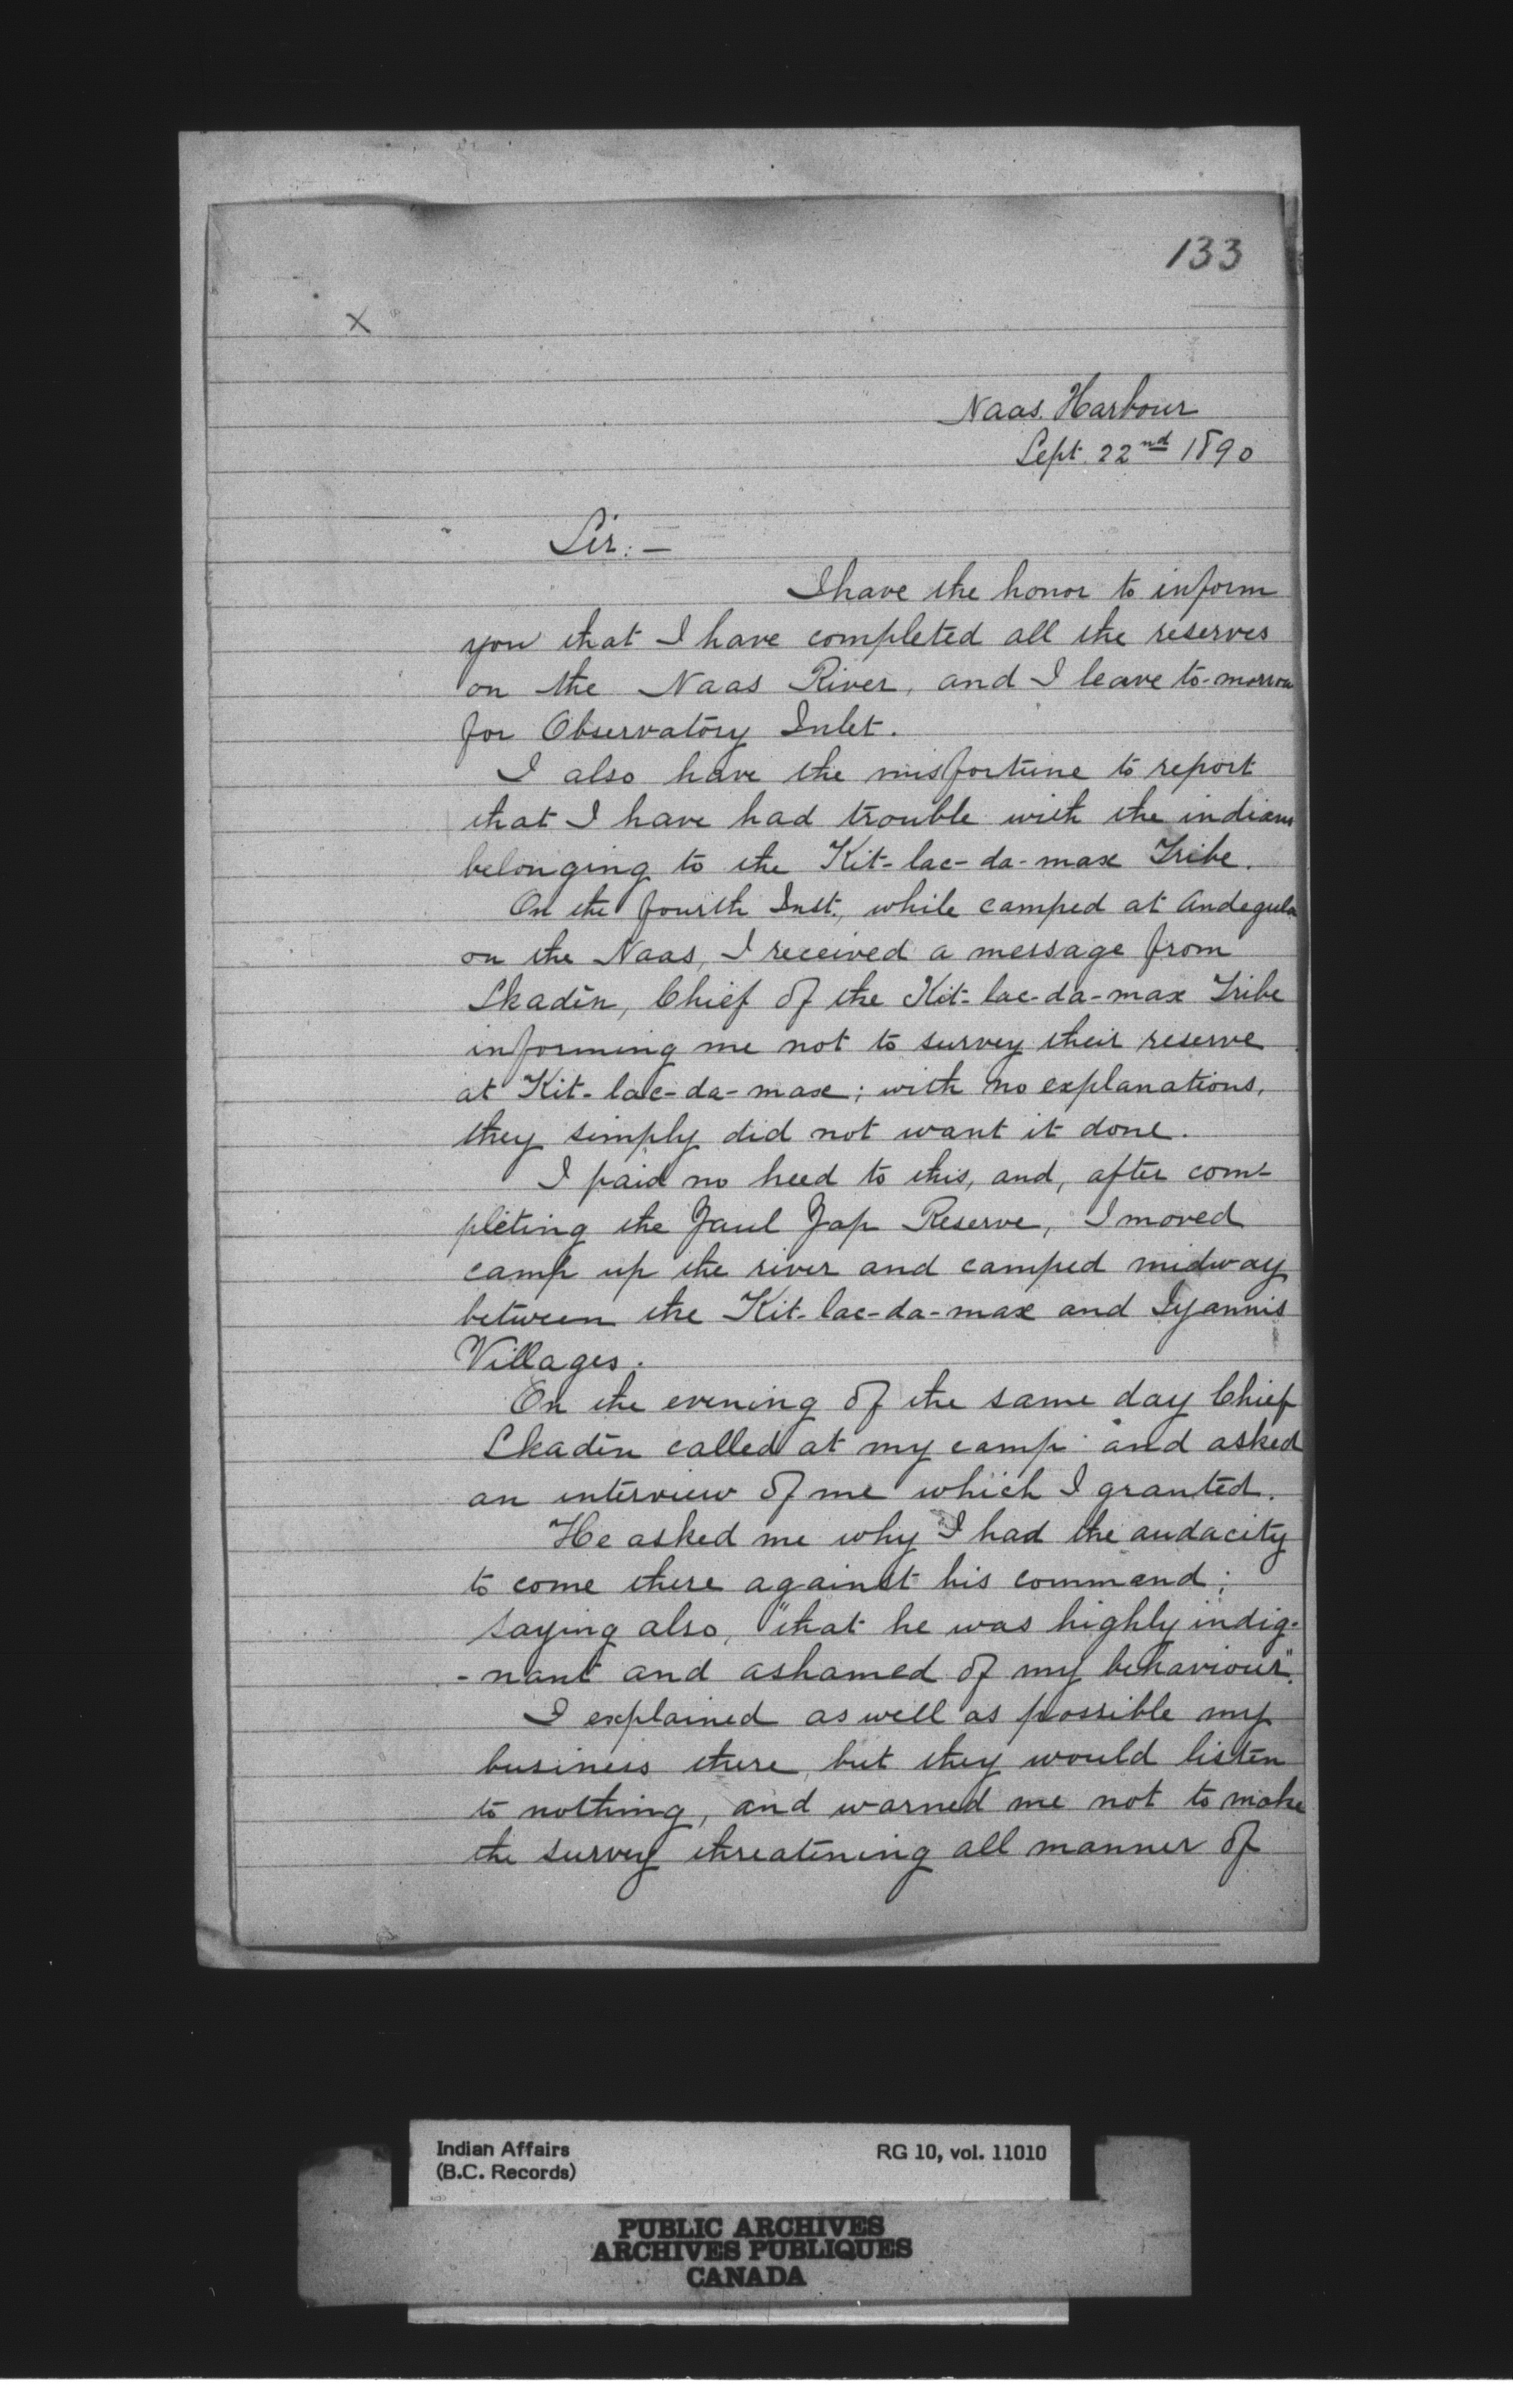 133
x
Naas Harbour
Sept. 22nd 1890
Sir: –
I have the honor to inform
you that I have completed all the reserves
on the Naas River, and I leave to-morrow
for Observatory Inlet.
I also have the misfortune to report
that I have had trouble with the indians
belonging to the Kit-lac-da-max Tribe.
On the fourth Inst., while camped at Andegula
on the Naas, I received a message from
Skadin, Chief of the Kit-lac-da-max Tribe
informing me not to survey their reserve
at Kit-lac-da-max; with no explanations,
they simply did not want it done.
I paid no heed to this, and, after com-
pleting the Zaul Zap Reserve, I moved
camp up the river and camped midway
between the Kit-lac-da-max and
Villages.
On the evening of the same day Chief
Skadin called at my camp and asked
an interview of me which I granted.
He asked me why I had the audacity
to come there against his command;
saying also, "that he was highly indig-
-nant and ashamed of my behaviour".
I explained as well as possible my
business there, but they would listen
to nothing, and warned me not to make
the survey threatening all manner of
Indian Affairs
(B.C. Records)
RG 10, vol. 11010
PUBLIC ARCHIVES
ARCHIVES PUBLIQUES
CANADA